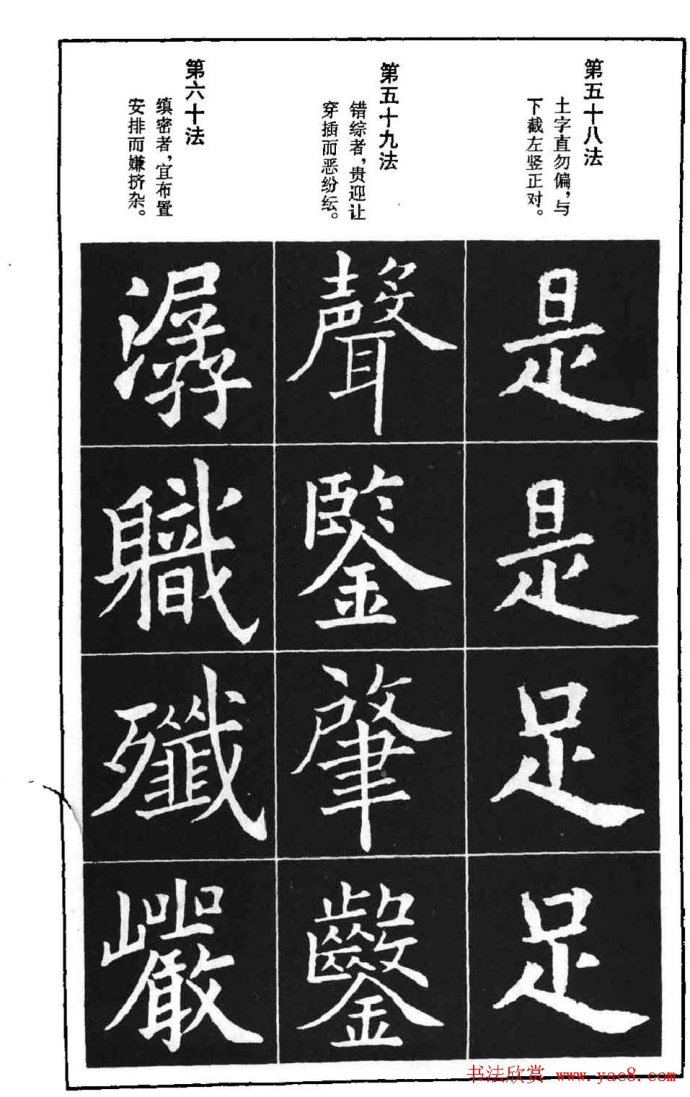 第五十八法
土字直勿偏，与
下截左竖正对。
是
是
足
足
第五十九法
错综者，贵迎让
穿插而恶纷纭。
聲
鑒
肇
鑿
第六十法
缜密者，宜布置
安排而嫌挤杂。
潺
軄
殲
巖
书法欣赏 www.yac8.com